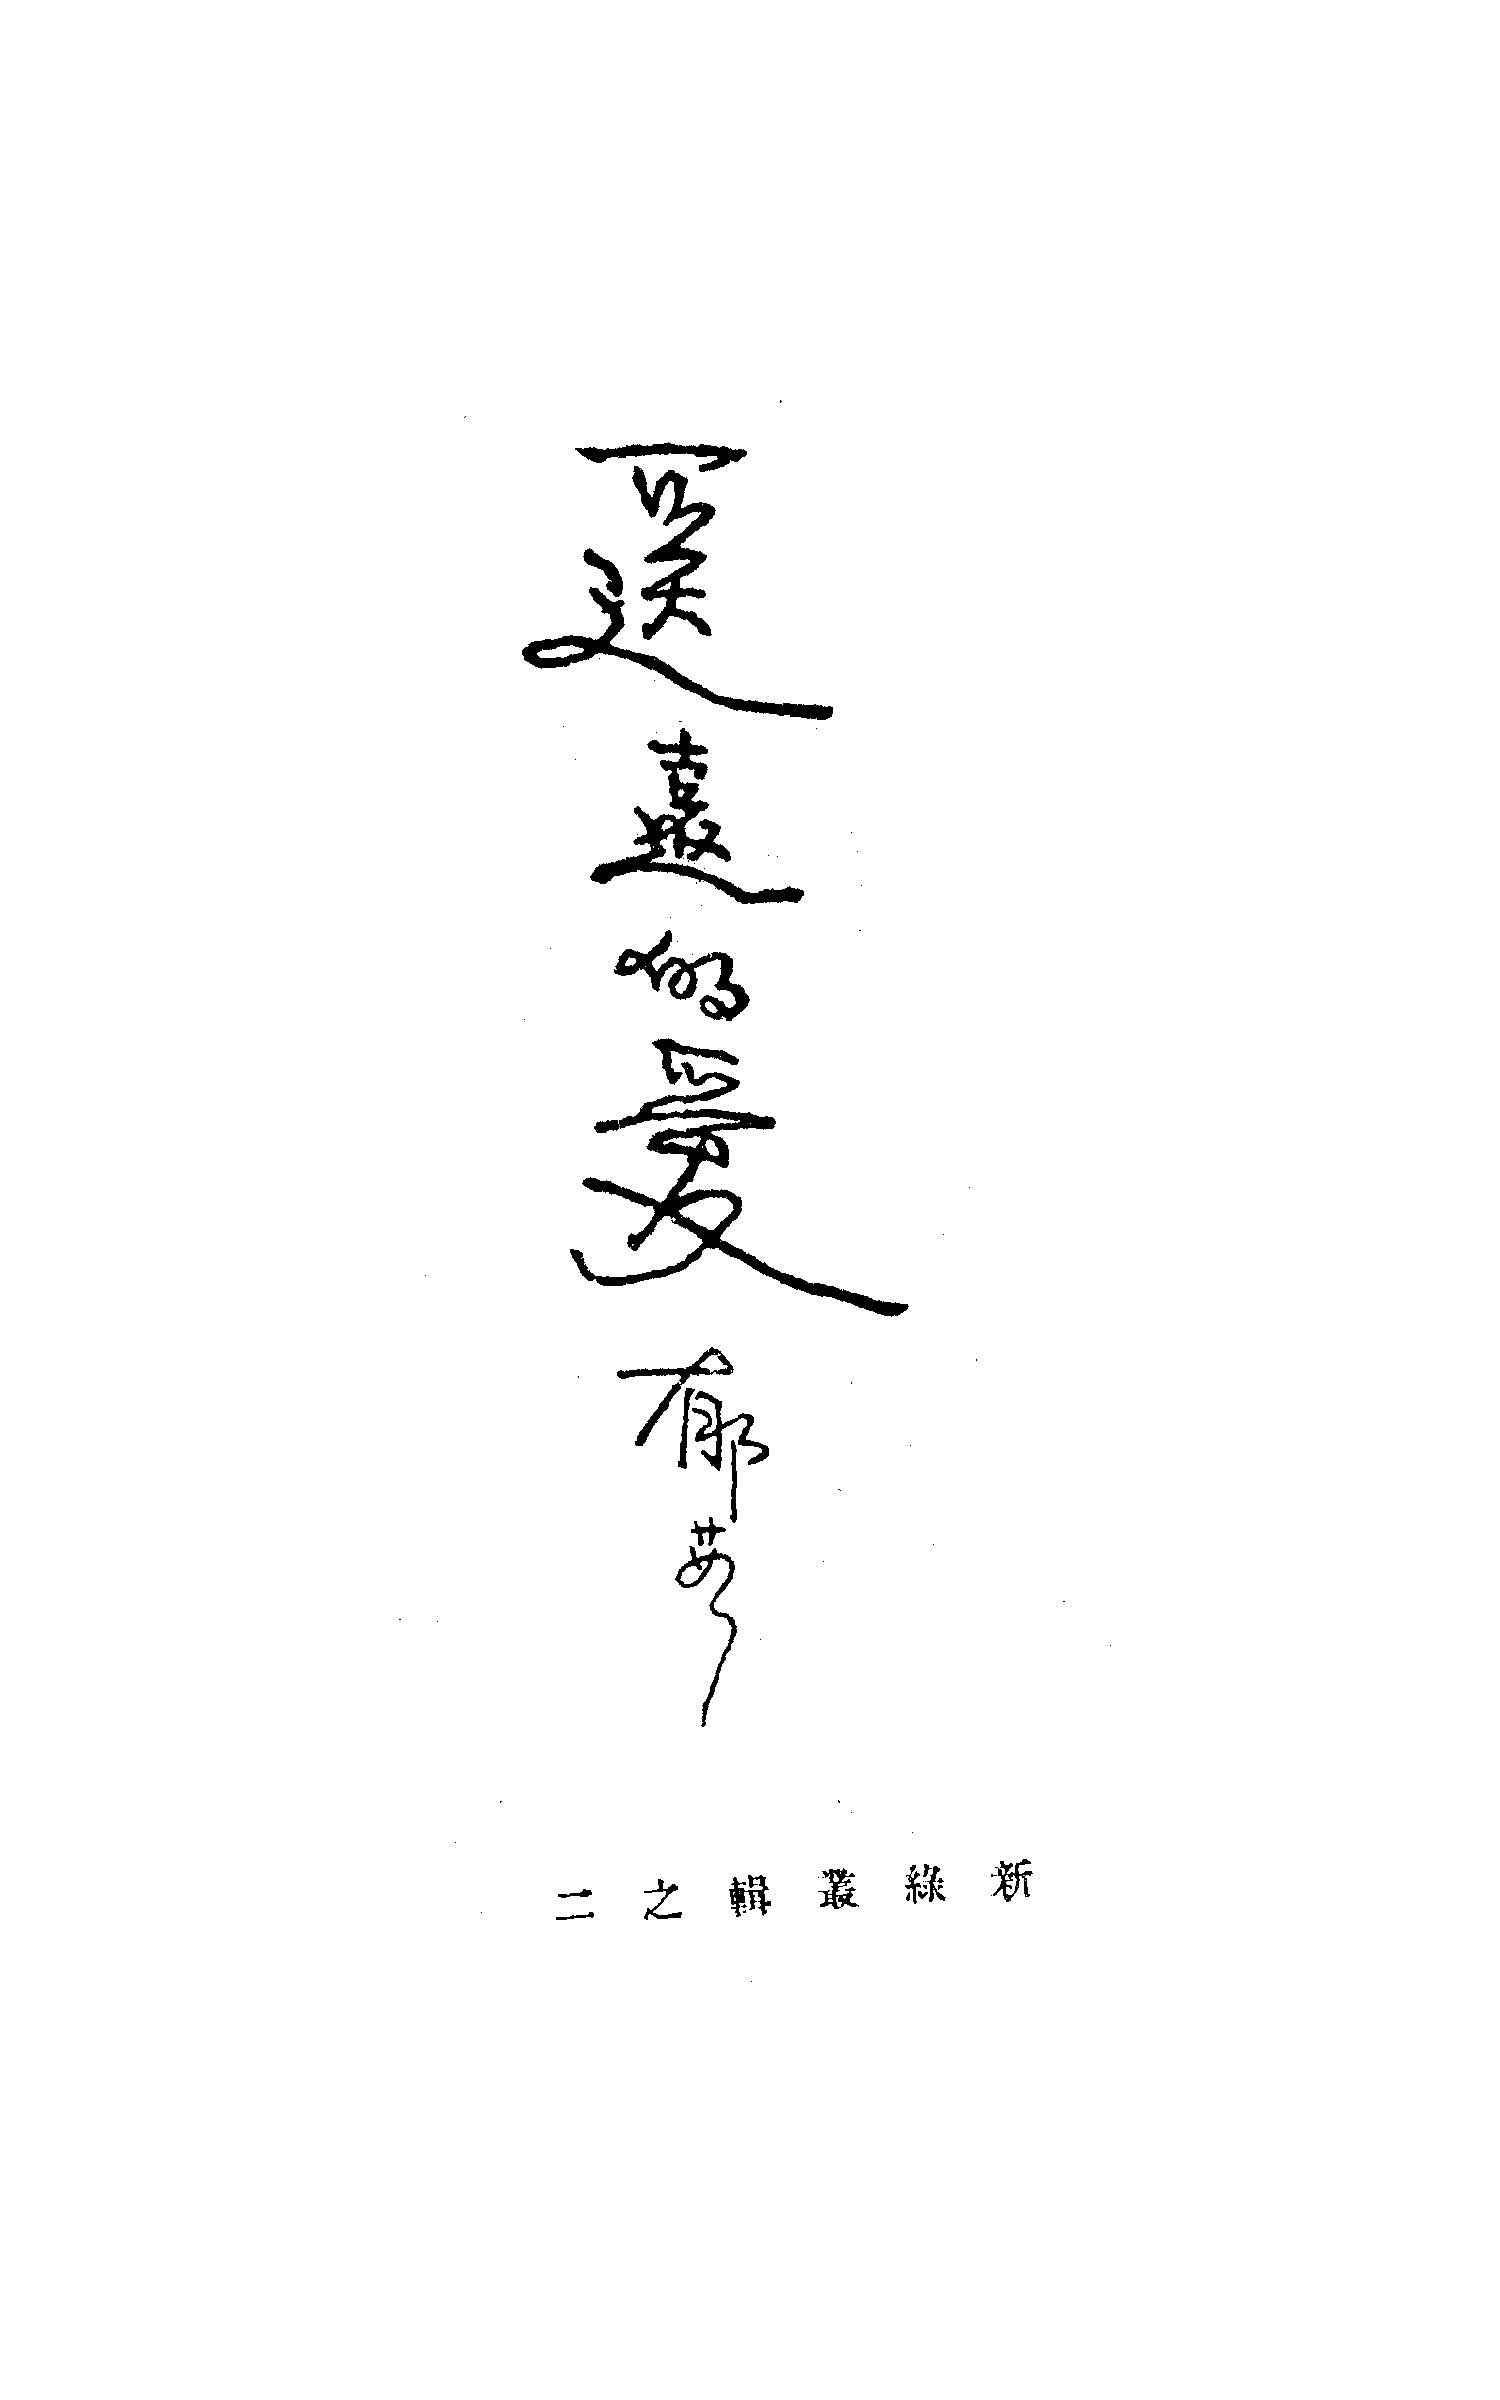 遙遠的愛 郁茹
新綠叢輯之二